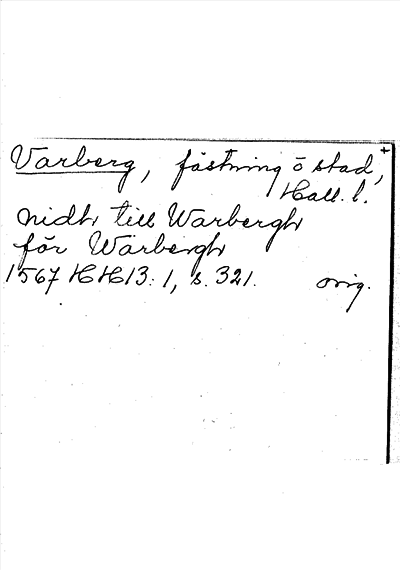 Varberg, fästning o stad, +
Hall. l.
nidh till Warbergh
för Warbergh
1567 HH13:1, s. 321. orig.